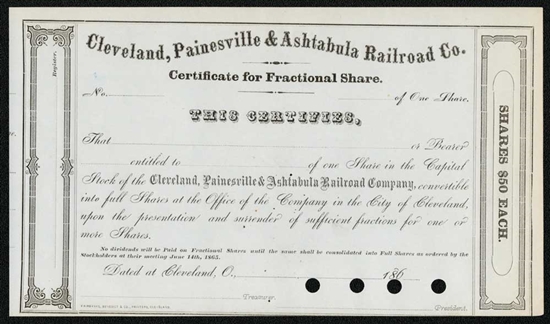 Cleveland, Painesville & Ashtabula Railroad Co.
Certificate for Fractional Share.
No. of One Share.
THIS CERTIFIES,
That or Bearer
entitled to of one Share in the Capital
Stock of the Cleveland, Painesville & Ashtabula Railroad Company, convertible
into full Shares at the Office of the Company in the City of Cleveland,
upon the presentation and surrender of sufficient fractions for one or
more Shares.
No dividends will be Paid on Fractional Shares until the same shall be consolidated into Full Shares as ordered by the
Stockholders at their meeting June 14th, 1865.
Dated at Cleveland, O., 186
Treasurer. President.
Register.
SHARES $50 EACH.